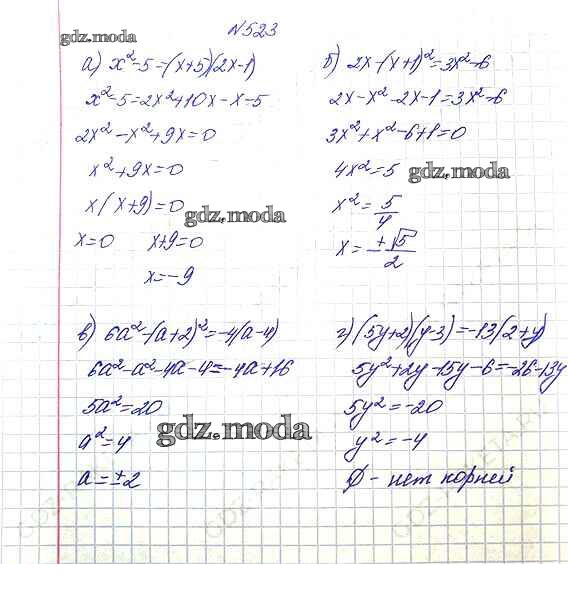 N 523
gdz.moda
а) x²-5=(x+5)(2x-1)
x²-5=2x²+10x-x-5
2x²-x²+9x=0
x²+9x=0
x(x+9)=0
gdz.moda
x=0 x+9=0
x=-9
б) 2x-(x+1)²=3x²-6
2x-x²-2x-1=3x²-6
3x²+x²-6+1=0
4x²=5
gdz.moda
x²=5/4
x=±√5/2
в) 6a²-(a+2)²=-4(a-4)
6a²-a²-4a-4=-4a+16
5a²=20
a²=4
gdz.moda
a=±2
г) (5y+2)(y-3)=-13(2+y)
5y²+2y-15y-6=-26-13y
5y²=-20
y²=-4
Ø - нет корней